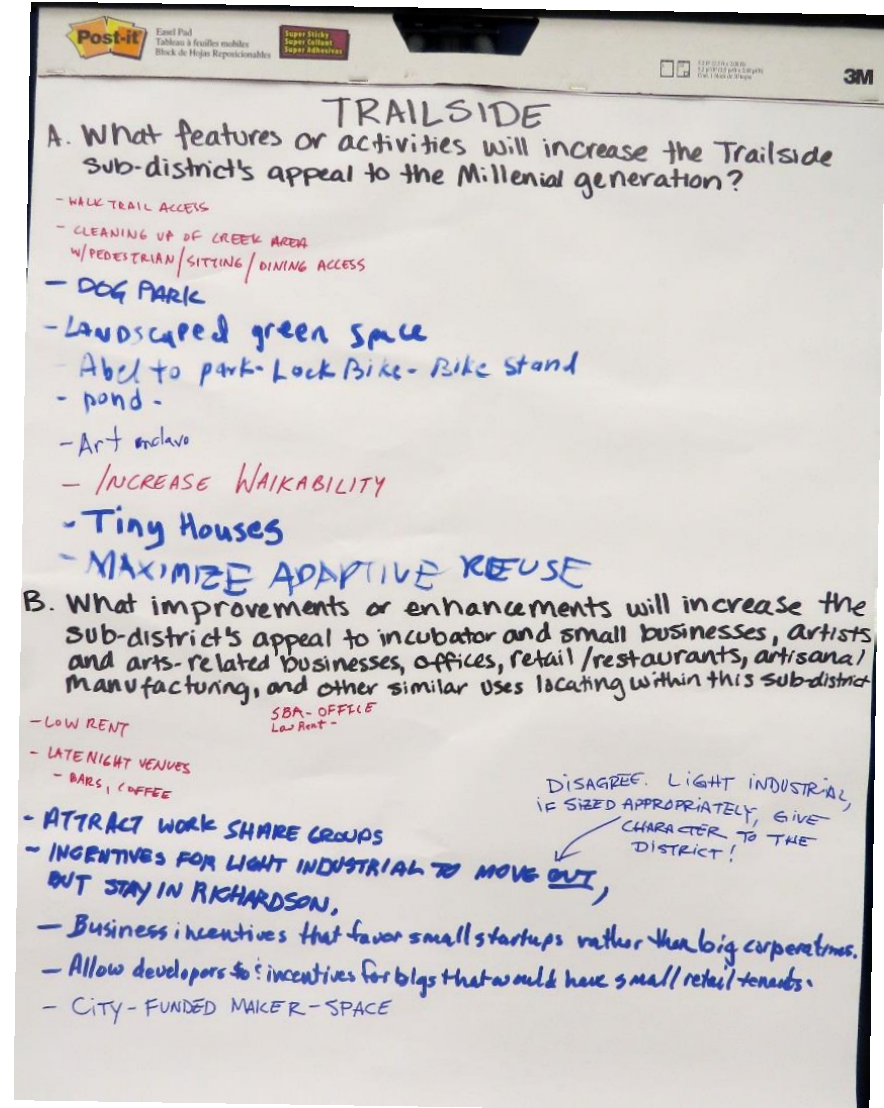 Post-it
Easel Pad
Tableau à feuilles mobiles
Block de Hojas Reposicionables
Super Sticky
Super Collant
Super Adhesivas
3M
TRAILSIDE
A. What features or activities will increase the Trailside
sub-district's appeal to the Millenial generation?
- WALK TRAIL ACCESS
- CLEANING UP OF CREEK AREA
W/PEDESTRIAN/SITTING/DINING ACCESS
- DOG PARK
- LANDscaped green space
- Abel to park- Lock Bike- Bike Stand
- pond -
- Art enclave
- INCREASE WALKABILITY
- Tiny Houses
- MAXIMIZE ADAPTIVE REUSE
B. What improvements or enhancements will increase the
sub-district's appeal to incubator and small businesses, artists
and arts-related businesses, offices, retail/restaurants, artisanal
manufacturing, and other similar uses locating within this sub-district
- LOW RENT
SBA- OFFICE
Low Rent -
- LATE NIGHT VENUES
- BARS, COFFEE
DISAGREE. LIGHT INDUSTRIAL,
IF SIZED APPROPRIATELY, GIVE
CHARACTER TO THE
DISTRICT!
- ATTRACT WORK SHARE GROUPS
- INCENTIVES FOR LIGHT INDUSTRIAL TO MOVE OUT,
BUT STAY IN RICHARDSON.
- Business incentives that favor small startups rather than big corperations.
- Allow developers to & incentives for blgs that would have small/retail tenants.
- CITY-FUNDED MAKER-SPACE